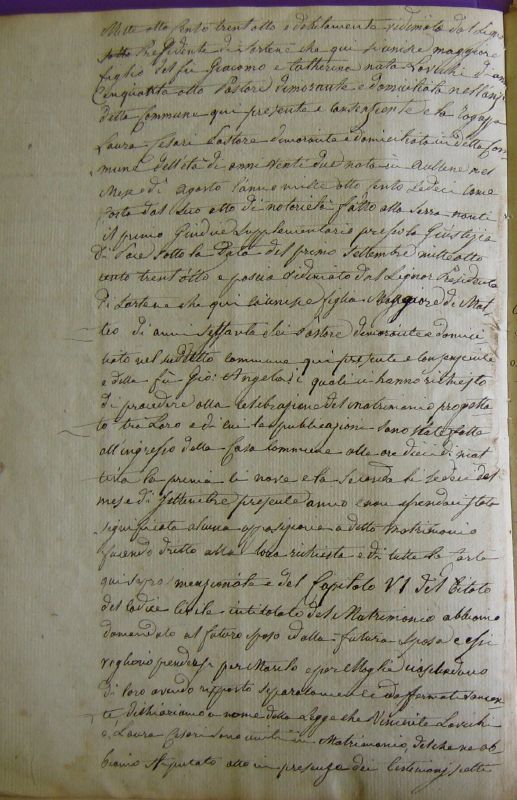 Mille otto cento trent'otto e debitamente vidimato dal Signor
Presidente di Sartene che qui si unisce maggiore
figlio del fu Giacomo e Catherina nata Lovichi d'anni
Cinquanta otto Pastore dimorante e domiciliato nell'anzi
detta Commune qui presente e consenziente e la ragazza
Laura Cesari Pastore dimorante e domiciliata in detta Com-
mune dell'età di anni venti due nata in Aullene nel
Mese di Agosto l'anno mille otto cento sedeci come
Costa dal suo atto di notorietà fatto alla Serra nanti
il primo Giudice Supplementario presso la Giustizia
di Pace sotto la data del primo Settembre mille otto
cento trent'otto e poscia vidimato dal Signor Presidente
di Sartene che qui si unisce figlia Maggiore di Mat-
teo di anni settanta sei Pastore dimorante e domici
liato nel suddetto commune qui presente e consenziente
e della fù Gio: Angela i quali ci hanno richiesto
di procedere alla celebrazione del matrimonio progetta
to tra Loro e di cui le publicazioni sono state fatte
all'ingresso della Casa Commune alle ore dieci di mat
tina la prima li nove e la seconda li sedeci del
mese di Settembre presente anno e non essendoci stata
significata alcuna opposizione a detto Matrimonio
facendo dritto alla loro richiesta e di tutte le carte
qui sopra menzionate e del Capitolo VI del titolo
del Codice Civile intitolato del Matrimonio abbiamo
domandato al futuro sposo e alla futura sposa se essi
vogliono prendersi per Marito e per Moglie ciascheduno
di loro avendo risposto separatamente ed affermativamen
te dichiariamo a nome della Legge che Vincente Lovichi
e Laura Cesari sono uniti in Matrimonio, del che ne ab-
biamo stipulato atto in presenza dei testimonj